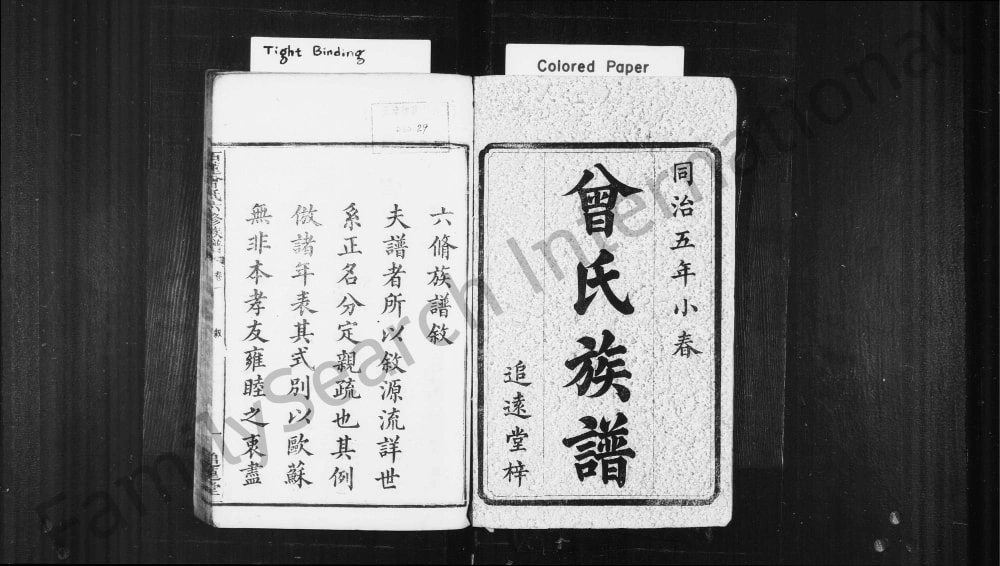 Tight Binding
Colored Paper
同治五年小春
曾氏族譜
追遠堂梓
29
六脩族譜敘
夫譜者所以敘源流詳世
系正名分定親疏也其例
倣諸年表其式別以歐蘇
無非本孝友雍睦之衷盡
曾氏六修族譜
敘
FamilySearch International